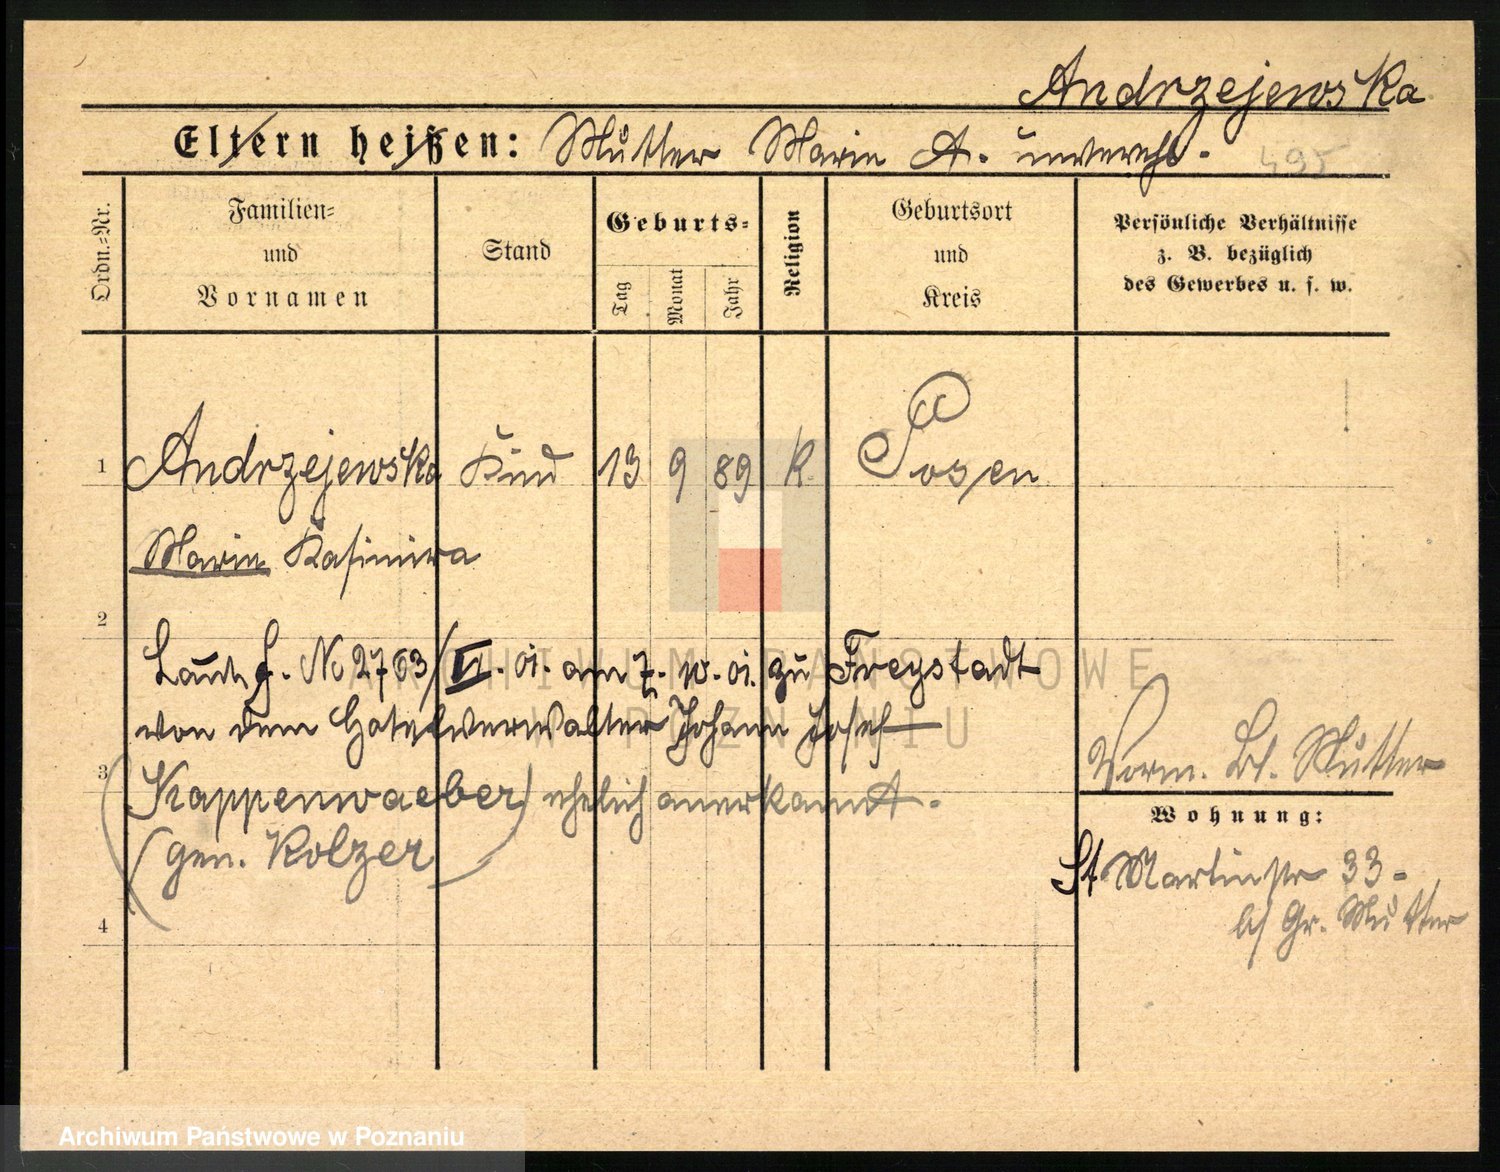 Andrzejewska
Eltern heißen: Mutter Marie A. unvereh.
495
Ordn.=Nr.
Familien=
und
Vornamen
Stand
Geburts=
Tag
Monat
Jahr
Religion
Geburtsort
und
Kreis
Persönliche Verhältnisse
z. B. bezüglich
des Gewerbes u. s. w.
1 Andrzejewska Kind 13 9 89 K. Posen
Marie Kasimira
2
Laut J. No 2763/ II. 01. am 7. 10. 01. zu Freystadt
von dem Hotelverwalter Johann Josef
3 (Kappenwaeber) ehelich anerkannt.
(gen. Kolzer)
4
Vorm. Bl. Mutter
Wohnung:
St Martinstr 33-
b/ Gr. Mutter
ARCHIWUM PAŃSTWOWE
W POZNANIU
Archiwum Państwowe w Poznaniu